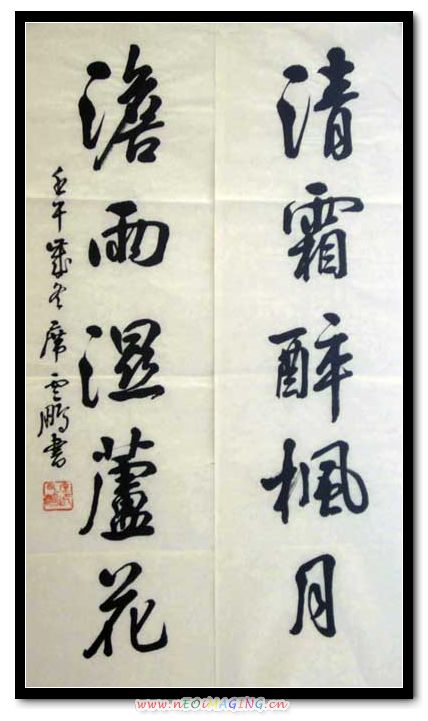 清霜醉楓月
澹雨濕蘆花
壬午歲冬席云鵬書
www.nEOiMAGiNG.cn